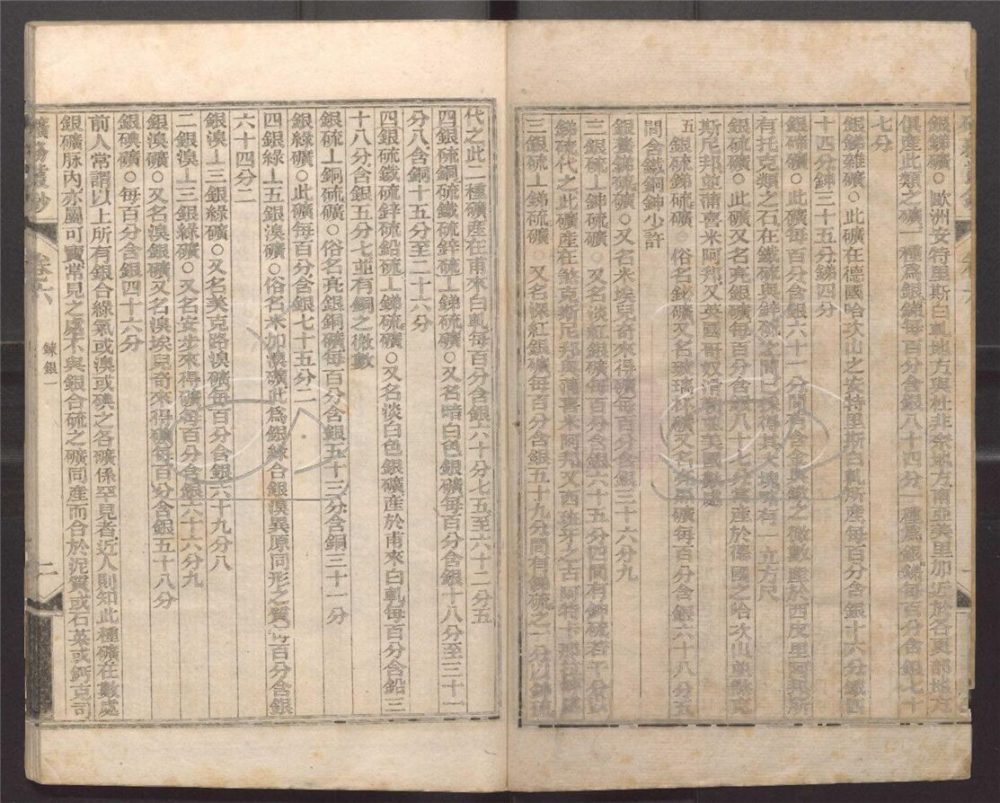 銀銻礦○歐洲安特里斯白軋地方與杜非奈地方南亞美里加近於各夏部地方
俱產此類之礦一種爲銀銻每百分含銀八十四分一種爲銀銻每百分含銀七十
七分
銀銻雜礦○此礦在德國哈次山之安特里斯白軋所產每百分含銀十六分鐵四
十四分鉮三十五分銻四分
銀碲礦○此礦每百分含銀六十一分間有含金與鐵之微數產於西皮里阿邦斯
有托克類之石在鐵硫與鋅硫之間已得其大塊畧有一立方尺
銀硫礦○此礦又名亮銀礦每百分含銀八十七分產於德國之哈次山並
斯尼邦並蒲喜米阿邦又英國哥奴瓦和美國數處
五銀硫銻硫礦 俗名鉍礦又名玻璃礦又名每百分含銀六十八分五
間含鐵銅鉮少許
銀臺銻硫礦○又名米埃兒奇來得礦每百分含銀三十六分九
三銀硫⊥鉮硫礦○又名淡紅銀礦每百分含銀六十五分四間有鉮硫若干分以
銻硫代之此礦產在煞克斯尼邦與蒲喜米阿邦又西班牙之古阿特卡那拉
三銀硫⊥銻硫礦○又名深紅銀礦每百分含銀五十九分間有銻硫之一分以鉮硫
代之此二種礦產在甫來白軋每百分含銀六十分七五至六十二分五
四銀硫銅硫鐵硫鋅硫⊥銻硫礦○又名暗白色銀礦每百分含銀十八分至三十一
分八含銅十五分至二十六分
四銀硫鐵硫鋅硫鉛硫⊥銻硫礦○又名淡白色銀礦產於甫來白軋每百分含鉛三
十八分含銀五分七並有銅之微數
銀硫⊥銅硫礦○俗名亮銀銅礦每百分含銀五十三分含銅三十一分
銀綠礦○此礦每百分含銀七十五分二
四銀綠⊥五銀溴礦○俗名米加溴礦此爲銀綠合銀溴異原同形之質每百分含銀
六十四分二
銀溴⊥三銀綠礦○又名美克路溴礦每百分含銀六十九分八
二銀溴⊥三銀綠礦○又名安步來得礦每百分含銀六十六分九
銀溴礦○又名溴銀礦又名溴埃兒奇來得礦每百分含銀五十八分
銀碘礦○每百分含銀四十六分
前人常謂以上所有銀合綠氣或溴或碘之各礦係罕見者近人則知此種礦在數處
銀礦脈內亦屬可寶常見之處不與銀合硫之礦同產而合於泥質或石英或鈣克司
卷六
鍊銀一
二